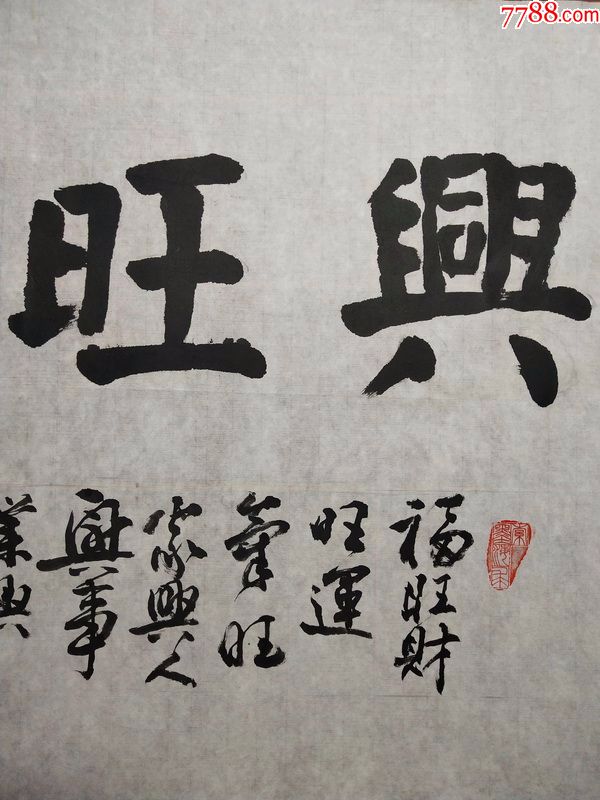 7788.com
興旺
福旺財
旺運
氣旺
家興人
興事
業興